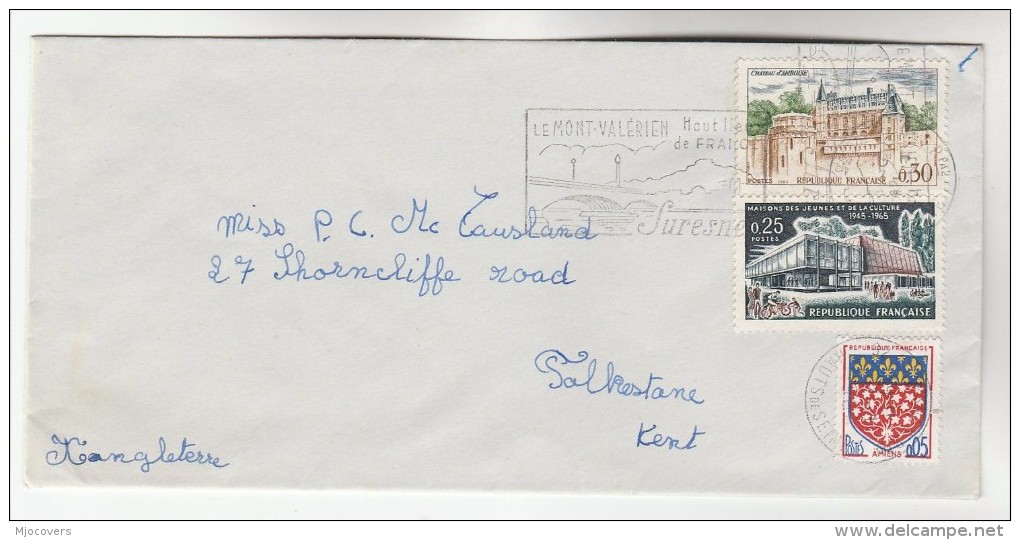 CHATEAU D'AMBOISE
POSTES
REPUBLIQUE FRANÇAISE
0,30
LE MONT-VALÉRIEN
Haut lieu
de FRANC
Suresne
MAISONS DES JEUNES ET DE LA CULTURE
0,25
1945-1965
POSTES
REPUBLIQUE FRANÇAISE
Miss P. C. Mc Causland
27 Thorncliffe road
Folkestane
Kent
Angleterre
REPUBLIQUE FRANÇAISE
POSTES
AMIENS
0,05
HAUTS DE SEINE
Mjocovers
www.delcampe.net